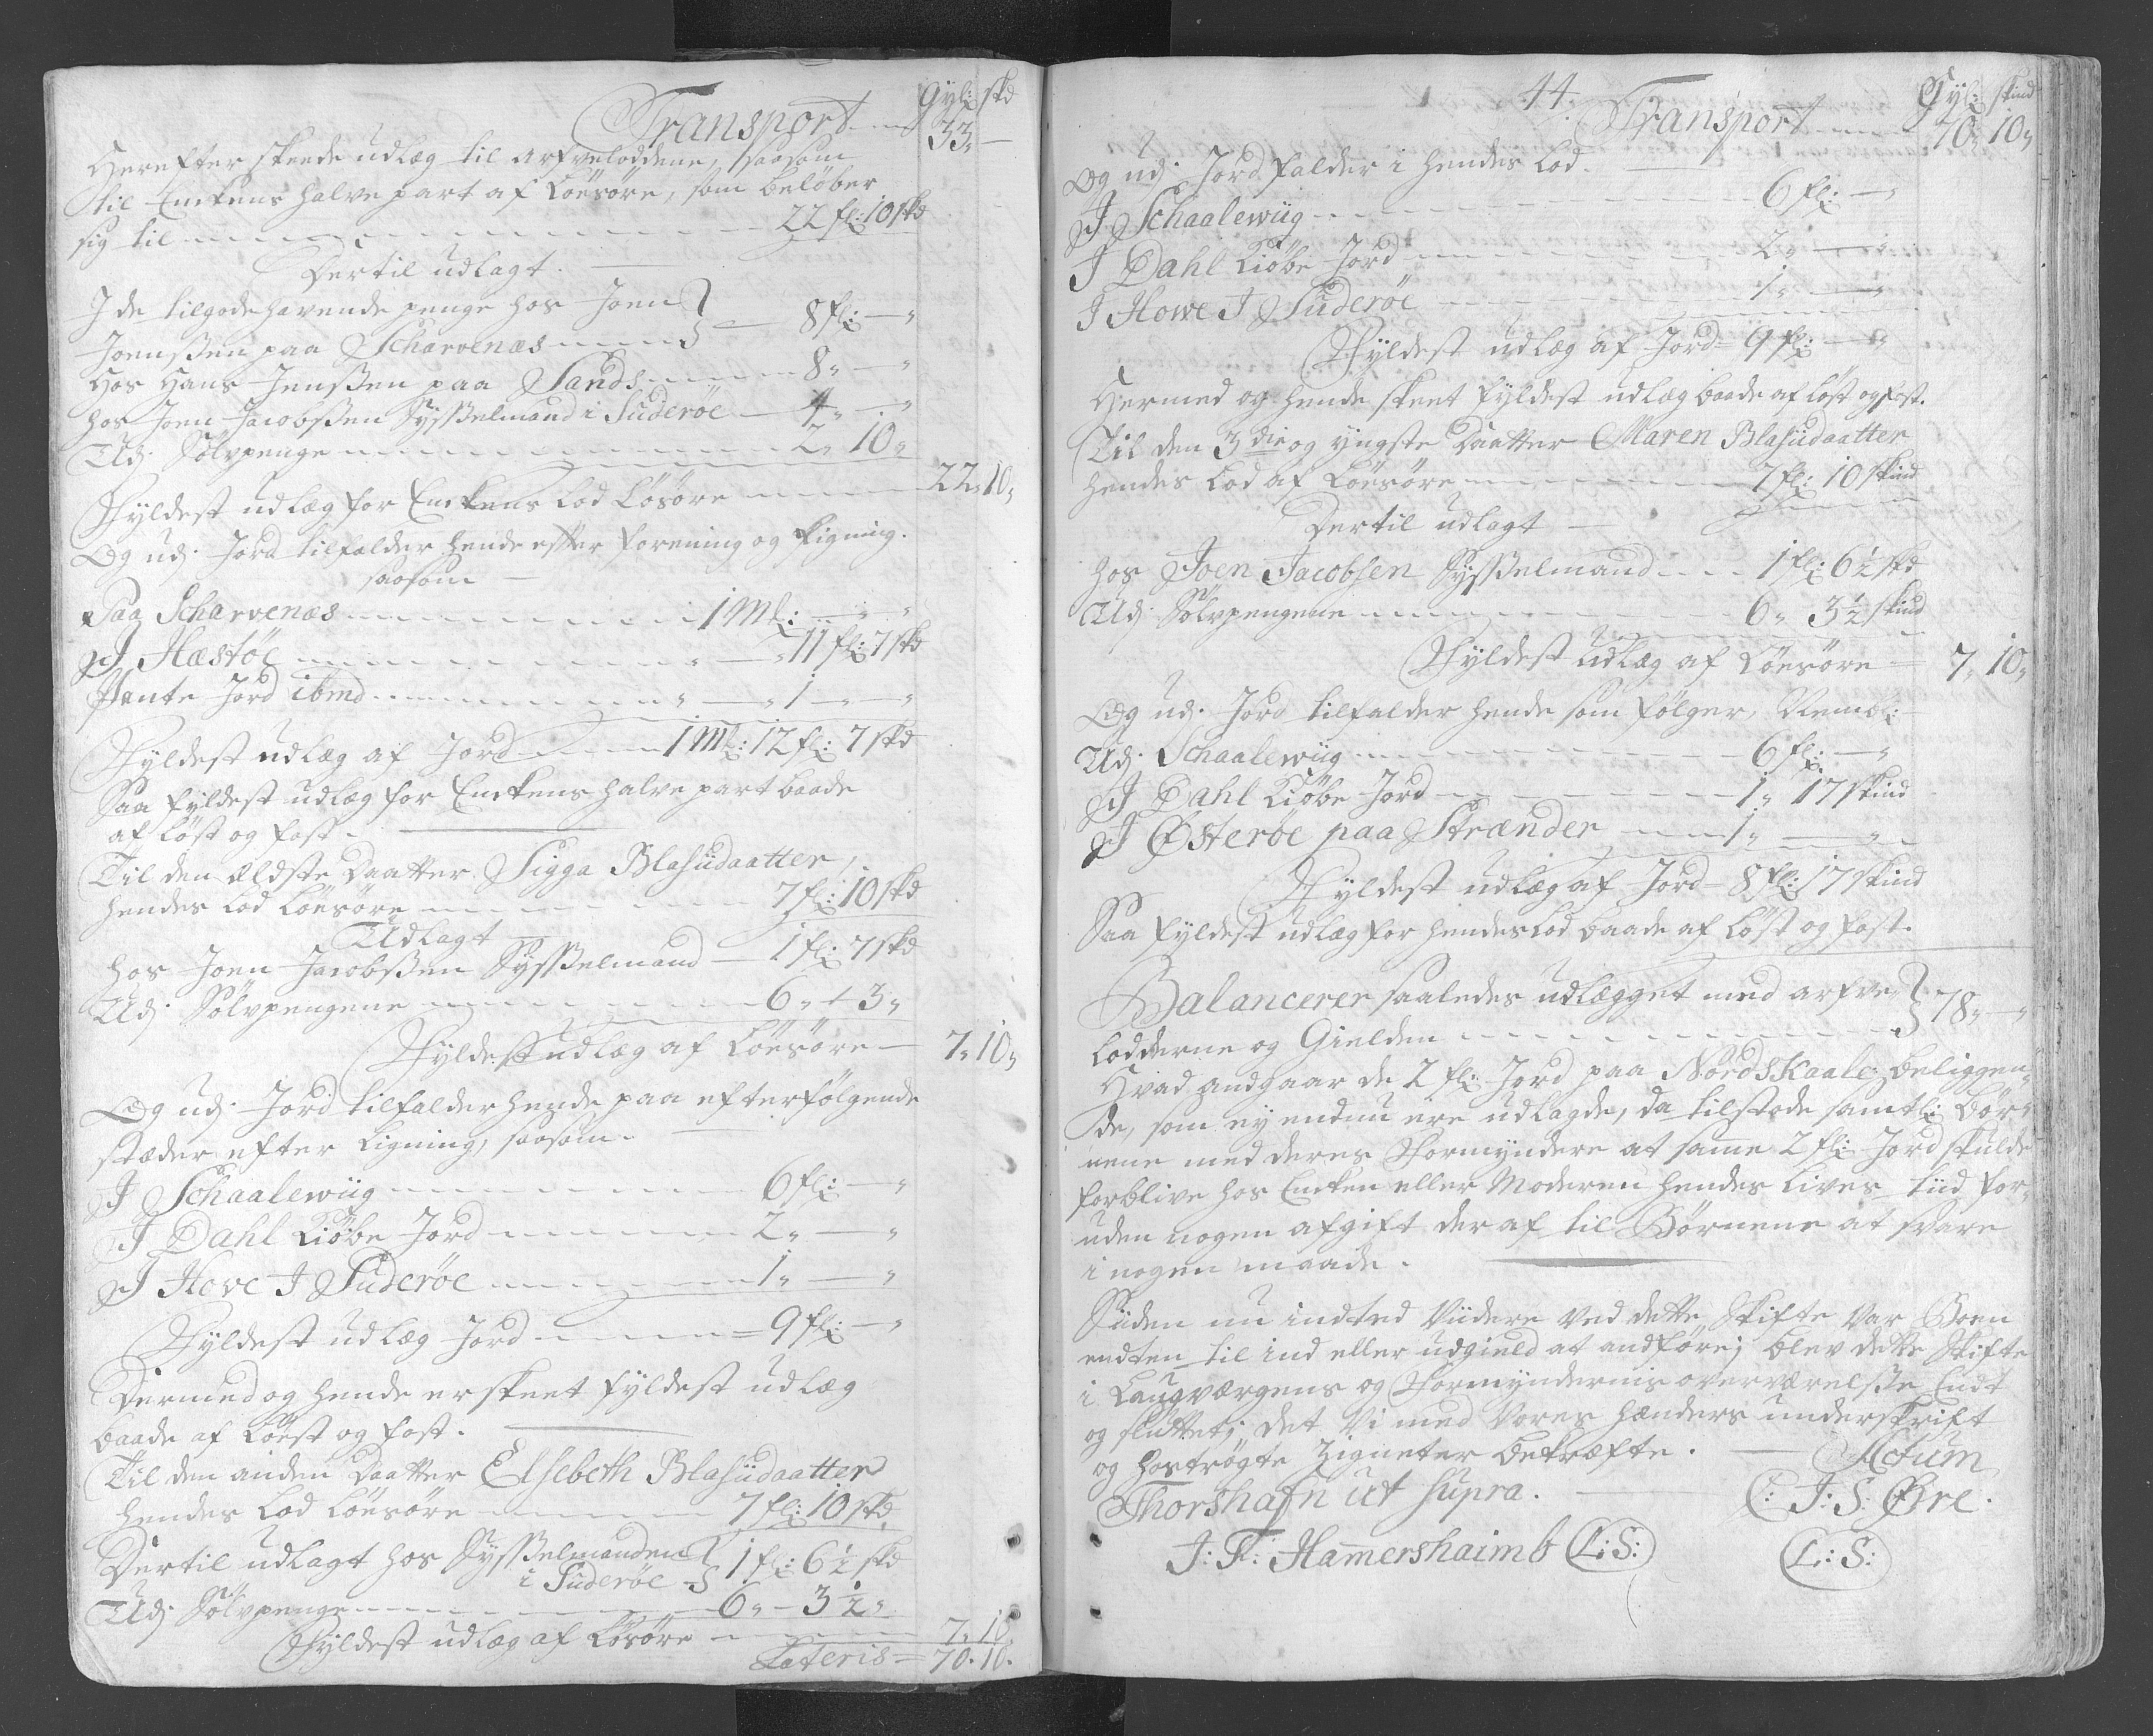 Gyl: skd
Transport 33„ —
Herefter skeede udlæg til arfvelodderne, saasom
til Enckens halve part af Löesöre, som beløber
sig til 22 fl: 10 skd
Dertil udlagt.
J de tilgodehavende penge hos Joen
Joensßen paa Scharvenæs 8 fl: — „
Hos Hans Jensßen paa Sands 8„ — „
hos Joen Jacobsßen Sysßelmand i Suderöe 4„ — „
Udj Sölvpenge 2„ 10„
Fyldest udlæg for Enckens Lod Lösöre 22„ 10„
Og udj Jord tilfalder hende efter forening og ligning.
saasom
Paa Scharvenæs 1 M: — „ — „
J Hæstöe „ — „ 11 fl: 7 skd
Pante Jord ibmd „ — „ 1 — „ — „
Fyldest udlæg af Jord 1 M: 12 fl: 7 skd
Saa fyldest udlæg for Enckens halve part baade
af löst og fast.
Til den ældste Daatter Sigga Blasiidaatter,
hendes Lod Löesöre 7 fl: 10 skd
Udlagt
hos Joen Jacobsßen Sysßelmand 1 fl: 7 skd
Udj Sölvpengene 6„ 3„
Fyldest udlæg af Löesöre 7„ 10„
Og udj Jord tilfalder hende paa efterfölgende
stæder efter ligning, saasom.
J Schaalewiig 6 fl: — „
J Dahl Kiöbe Jord 2„ — „
J Hove J Suderöe 1„ — „
Fyldest udlæg Jord 9 fl: — „
Dermed og hende er skeet fyldest udlæg
baade af Löest og fast.
Til den anden Daatter Elsebeth Blasiidaatter
hendes Lod Löesöre 7 fl: 10 skd
Dertil udlagt hos Sysßelmanden
i Suderöe 1 fl: 6½ skd
Udj Sölvpenge 6„ — 3½„
Fyldest udlæg af Lösöre 7„ 10.
Lateris 70. 10.
44. Gyl: skind
Transport 70„ 10„
Og udj Jord falder i hendes Lod.
J Schaalewiig 6 fl: — „
J Dahl Kiöbe Jord 2„ — „
J Howe J Suderöe 1„ — „
Fyldest udlæg af Jord 9 fl: — „
Hermed og hende skeet fyldest udlæg baade af löst og fast.
Til den 3die og yngste Daatter Maren Blasiidaatter
hendes Lod af Löesöre 7 fl: 10 skind
Dertil udlagt
hos Joen Jacobsen Sysßelmand 1 fl: 6½ skd
Udj Sölvpengene 6„ 3½ skind
Fyldest udlæg af Löesöre 7„ 10„
Og udj Jord tilfalder hende som fölger, Neml:
Udj Schaalewiig 6 fl: — „
J Dahl Kiöbe Jord 1„ 17 skind
J Østeröe paa Strænder 1„ — „
Fyldest udlæg af Jord 8 fl: 17 skind
Saa fyldest udlæg for hendes Lod baade af löst og fast.
Balancerer saaledes udlægget med arfve
lodderne og Gielden 78„ — „
Hvad andgaar de 2 fl: Jord paa Nordskaale beliggen„
de, som ey endnu ere udlagde, da tilstode samtl: Bör„
nene med deres Formyndere at samme 2 fl: Jord skulde
forblive hos Encken eller Moderen hendes Lives tiid for„
uden nogen afgift deraf til Börnene at svare
i nogen maade.
Siiden nu indted viidere ved dette Skifte var Boen
endten til ind eller udgield at andföre; blev dette Skifte
i Laugværgens og Formyndernis overværelsße Endt
og sluttet; det Vi med Vores hænders underskrift
og hoströgte Zigneter bekræfte. Actum
Thorshafn ut supra. C: J: S: Øre.
J: F: Hamershaimb L: S: L: S: